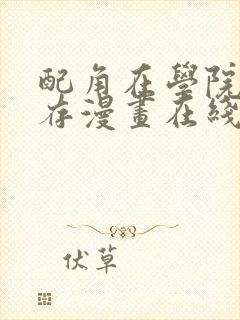 配角在學院
存漫畫在綫
伏草